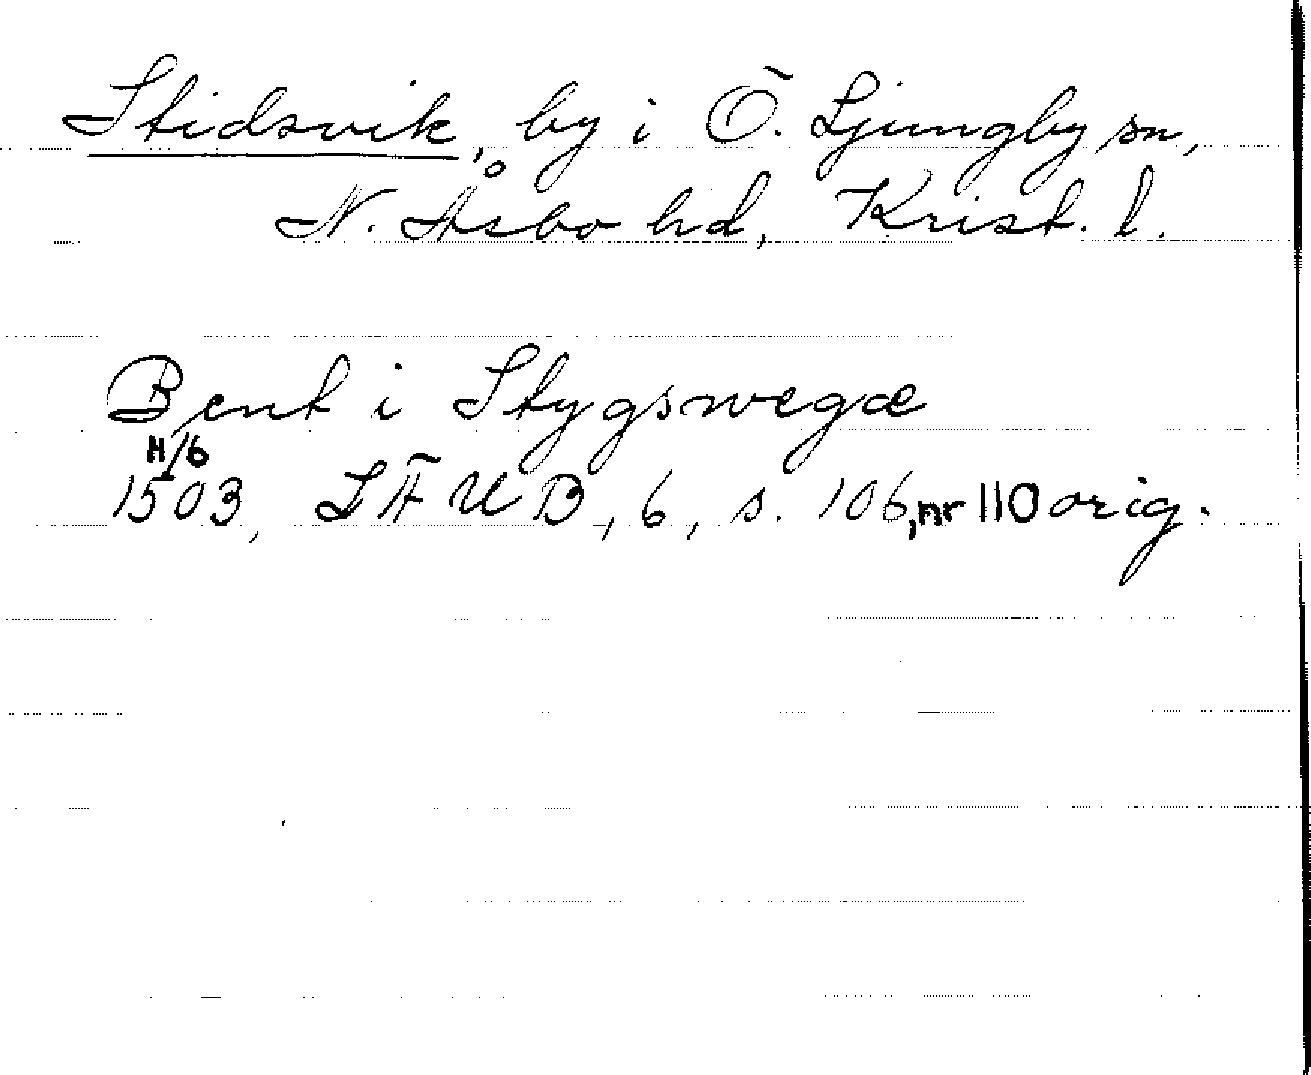 Stidsvik, by i Ö. Ljungby sn,
N. Åsbo hd, Krist. l.
Bent i Stygswegæ
11/6
1503, LÄUB, 6, s. 106, nr 110 orig.